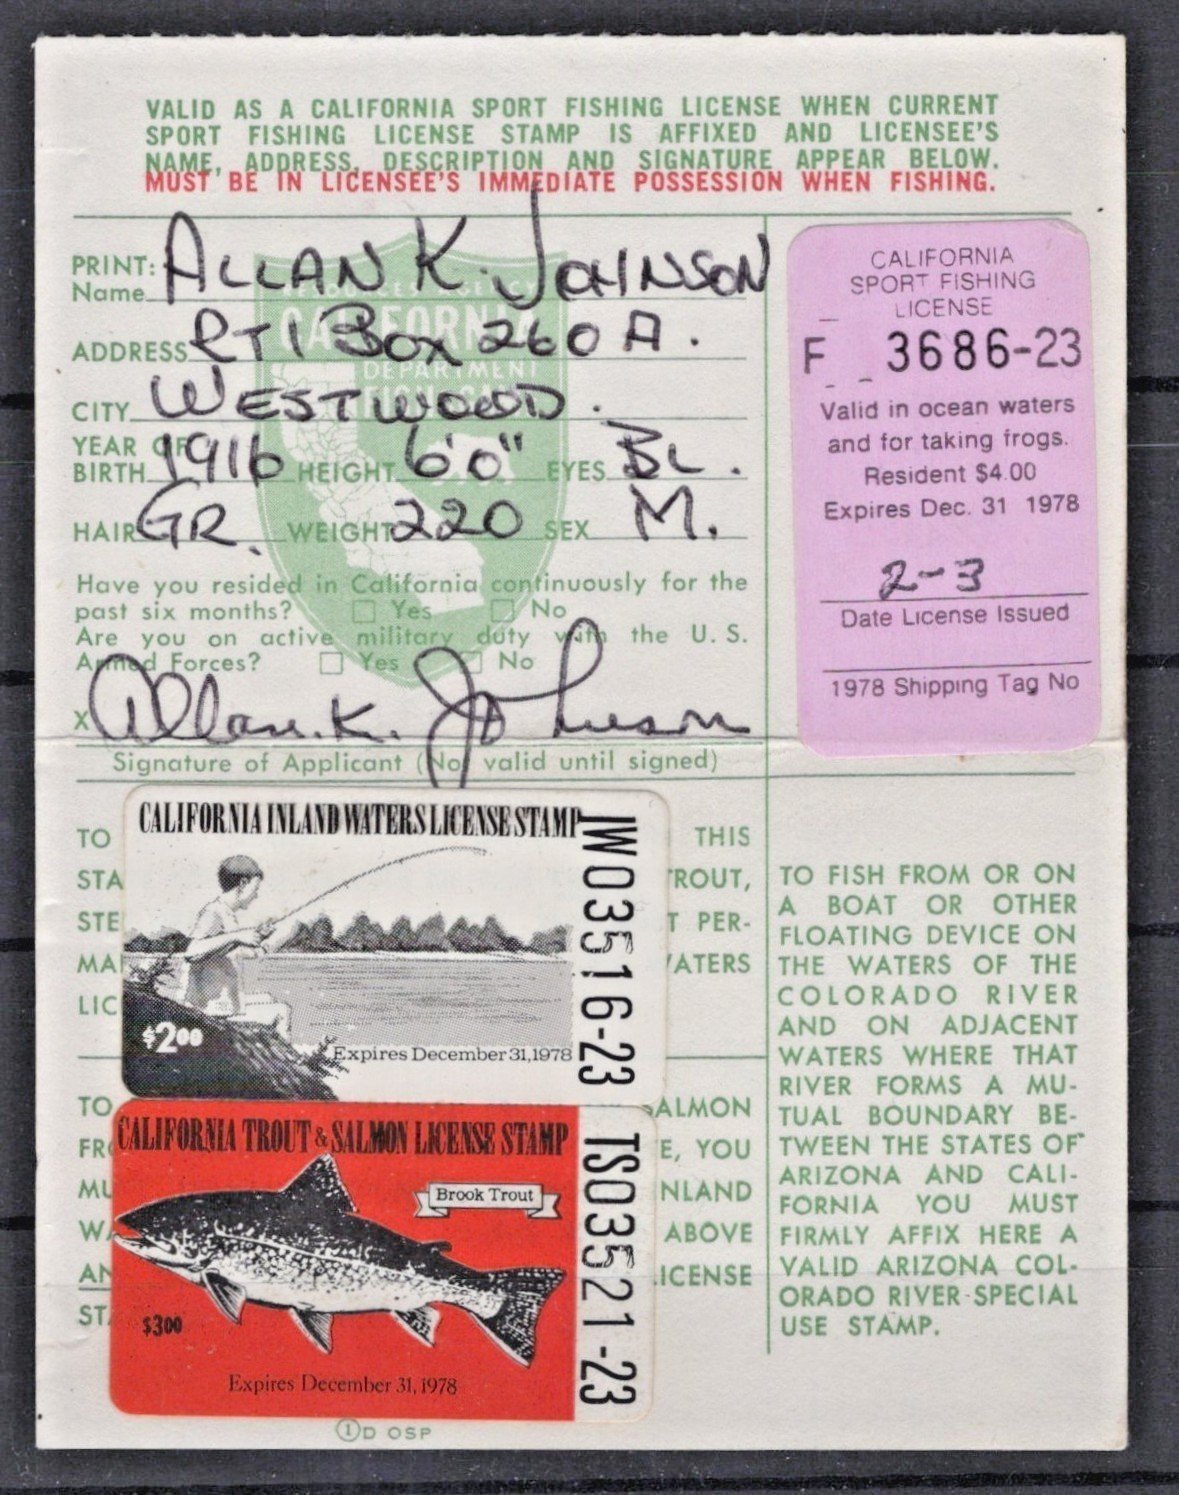 VALID AS A CALIFORNIA SPORT FISHING LICENSE WHEN CURRENT
SPORT FISHING LICENSE STAMP IS AFFIXED AND LICENSEE'S
NAME, ADDRESS, DESCRIPTION AND SIGNATURE APPEAR BELOW.
MUST BE IN LICENSEE'S IMMEDIATE POSSESSION WHEN FISHING.
PRINT:
Name ALLAN K. JOHNSON
ADDRESS RT1 Box 260 A.
CITY WESTWOOD.
YEAR OF
BIRTH 1916 HEIGHT 6'0" EYES BL.
HAIR GR. WEIGHT 220 SEX M.
CALIFORNIA
DEPARTMENT
Have you resided in California continuously for the
past six months? Yes No
Are you on active military duty with the U. S.
Armed Forces? Yes No
X Allan. K. Johnson
Signature of Applicant (Not valid until signed)
CALIFORNIA
SPORT FISHING
LICENSE
F 3686-23
Valid in ocean waters
and for taking frogs.
Resident $4.00
Expires Dec. 31 1978
2-3
Date License Issued
1978 Shipping Tag No
TO THIS
STA ROUT,
STE T PER-
MA WATERS
LIC
CALIFORNIA INLAND WATERS LICENSE STAMP
IW03516-23
$2.00
Expires December 31, 1978
TO SALMON
FRO E, YOU
MU NLAND
WA ABOVE
AN ICENSE
STA
CALIFORNIA TROUT & SALMON LICENSE STAMP
Brook Trout
TS03521-23
$3.00
Expires December 31, 1978
TO FISH FROM OR ON
A BOAT OR OTHER
FLOATING DEVICE ON
THE WATERS OF THE
COLORADO RIVER
AND ON ADJACENT
WATERS WHERE THAT
RIVER FORMS A MU-
TUAL BOUNDARY BE-
TWEEN THE STATES OF
ARIZONA AND CALI-
FORNIA YOU MUST
FIRMLY AFFIX HERE A
VALID ARIZONA COL-
ORADO RIVER SPECIAL
USE STAMP.
①D OSP